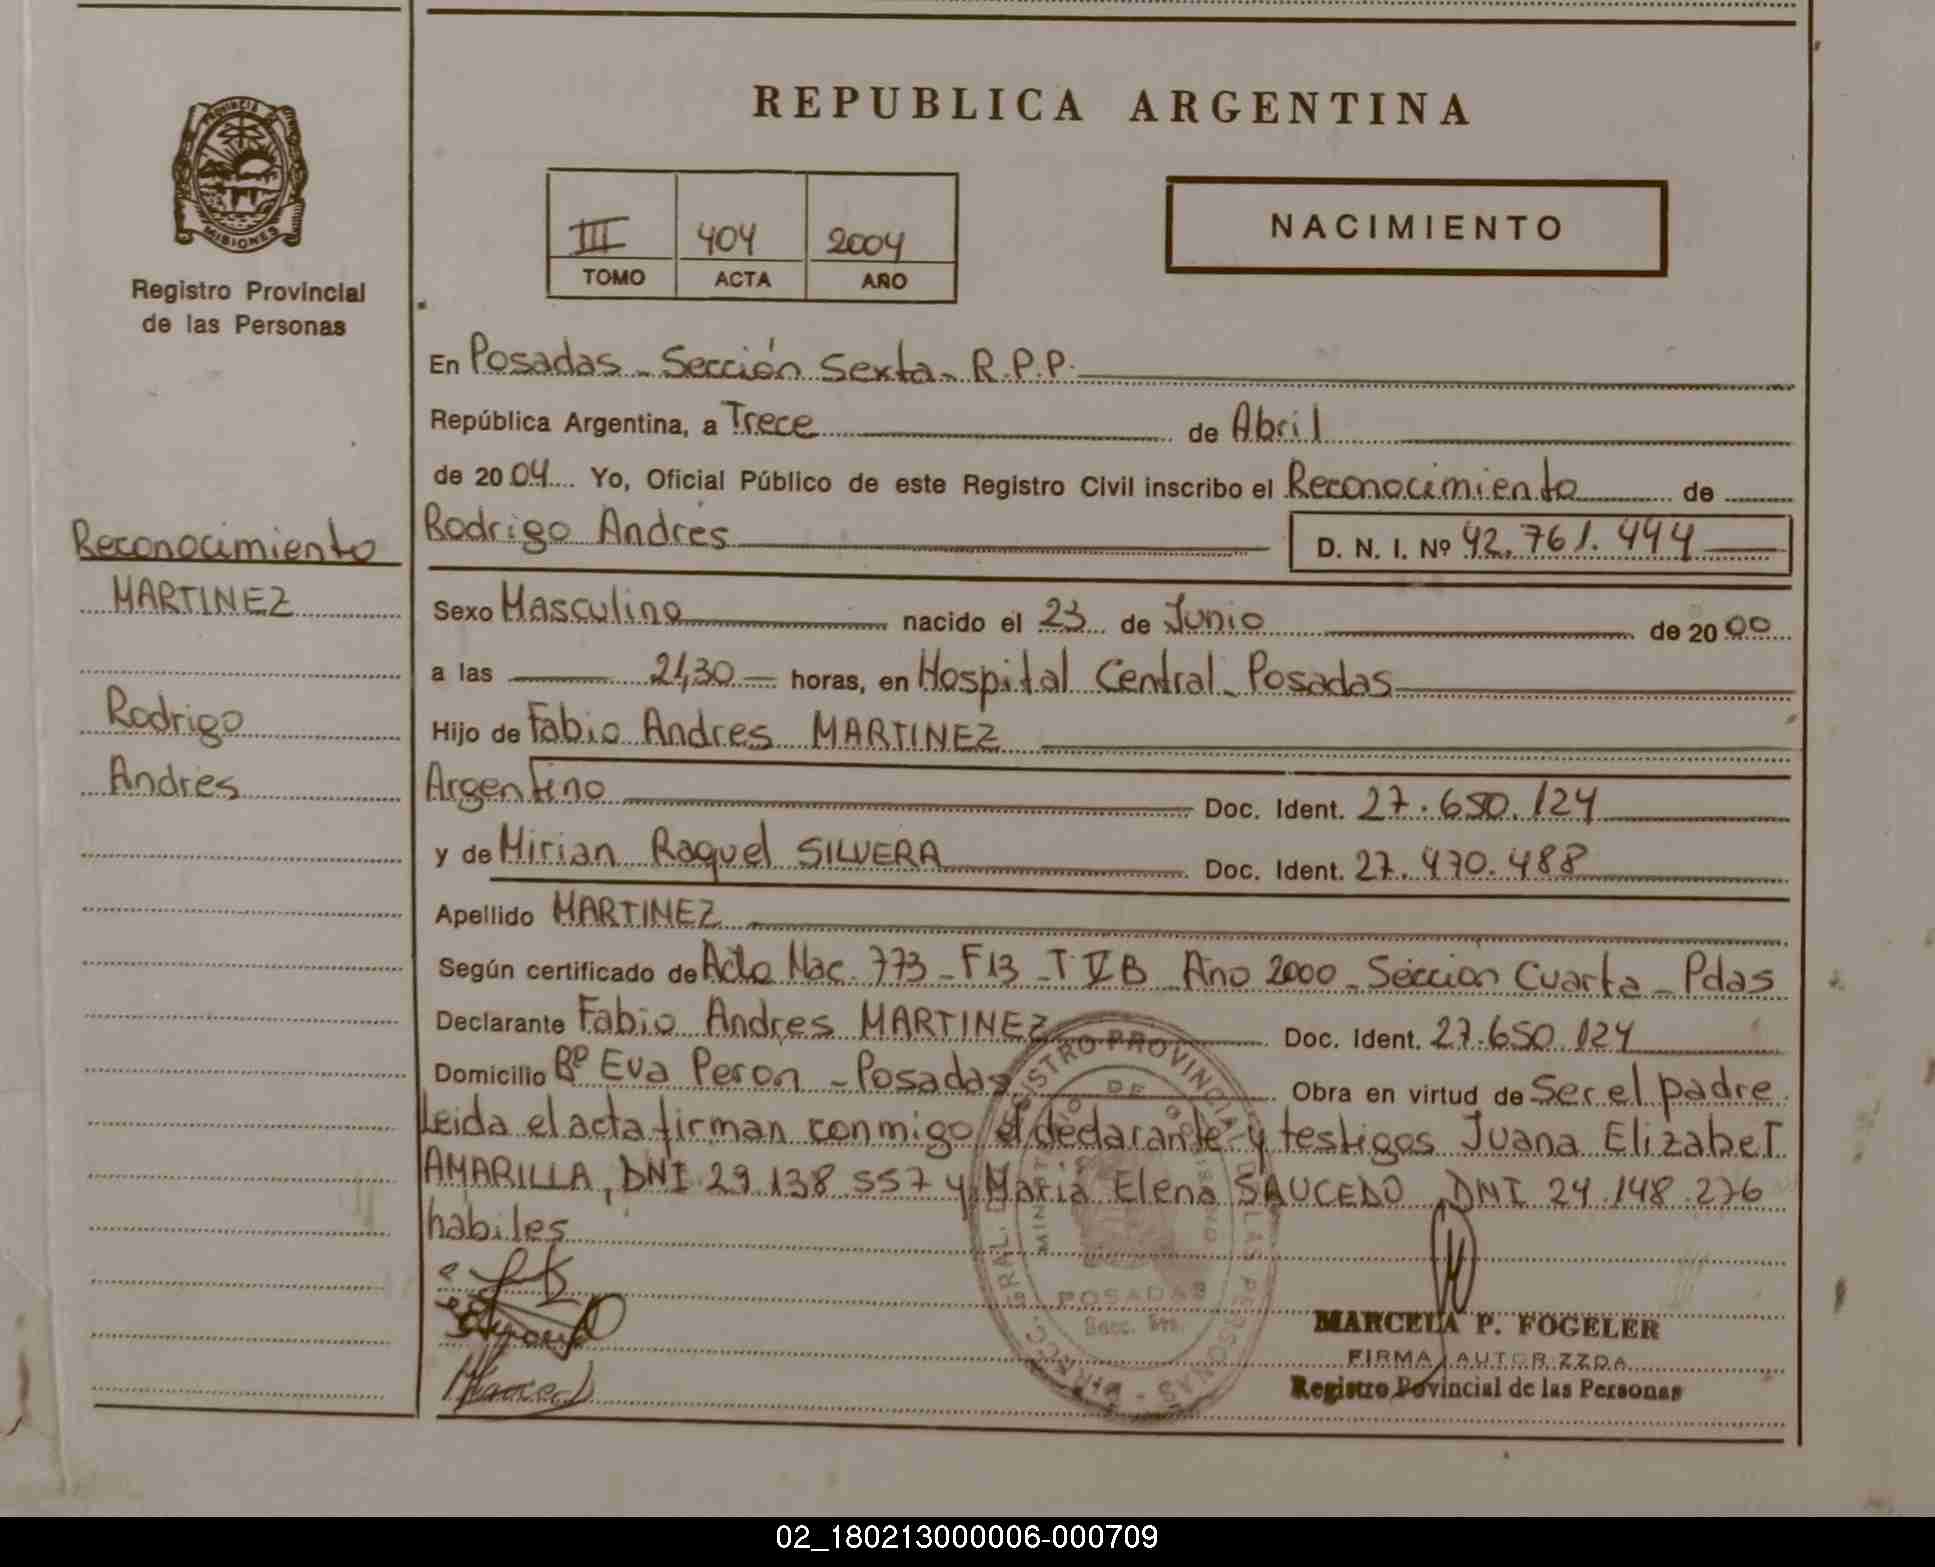 PROVINCIA DE
MISIONES
Registro Provincial
de las Personas
Reconocimiento
MARTINEZ
Rodrigo
Andrés
REPUBLICA ARGENTINA
III 404 2004
TOMO ACTA AÑO
NACIMIENTO
En Posadas - Sección Sexta - R.P.P.
República Argentina, a Trece de Abril
de 2004 Yo, Oficial Público de este Registro Civil inscribo el Reconocimiento de
Rodrigo Andrés D. N. I. Nº 42.761.444
Sexo Masculino nacido el 23 de Junio de 2000
a las 21,30 horas, en Hospital Central - Posadas
Hijo de Fabio Andres MARTINEZ
Argentino Doc. Ident. 27.650.124
y de Mirian Raquel SILVERA Doc. Ident. 27.470.488
Apellido MARTINEZ
Según certificado de Acta Nac. 773 - F 13 - T V B Año 2000 - Sección Cuarta - Pdas
Declarante Fabio Andres MARTINEZ Doc. Ident. 27.650.124
Domicilio Bº Eva Peron - Posadas Obra en virtud de Ser el padre
Leida el acta firman conmigo el declarante y testigos Juana Elizabet
AMARILLA, DNI 29.138.557 y Maria Elena SAUCEDO, DNI 24.148.276
habiles
DIRECC. GRAL. REGISTRO PROVINCIAL DE LAS PERSONAS
MINISTERIO DE GOBIERNO
POSADAS
Secc. 6ta.
MARCELA P. FOGELER
FIRMA AUTORIZZDA
Registro Povincial de las Personas
02_180213000006-000709